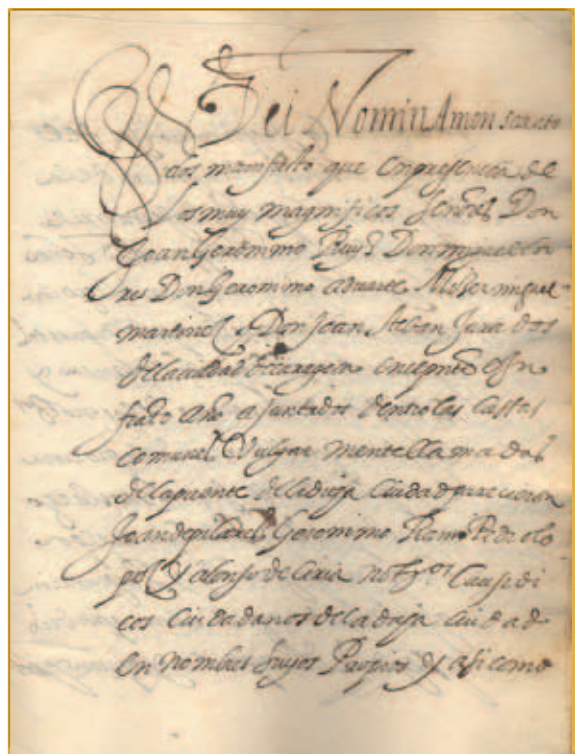 Dei Nomin Amen sea a to
dos manifiesto que en presencia de
los muy magnificos señores Don
Joan Geronimo Don miguel
res Don Geronimo Miser miguel
martinez Don Joan Steban Jurados
de la ciudad de caragoca en el presente
año ajuntados dentro las cassas
comunes Vulgarmente llamadas
de la puente de la dicha ciudad parecieron
Joan de pilares Geronimo Ram Pedro lo
pez Y alonso de notos Causidi
cos ciudadanos de la dicha ciudad
en nombres suyos Propios y asi como